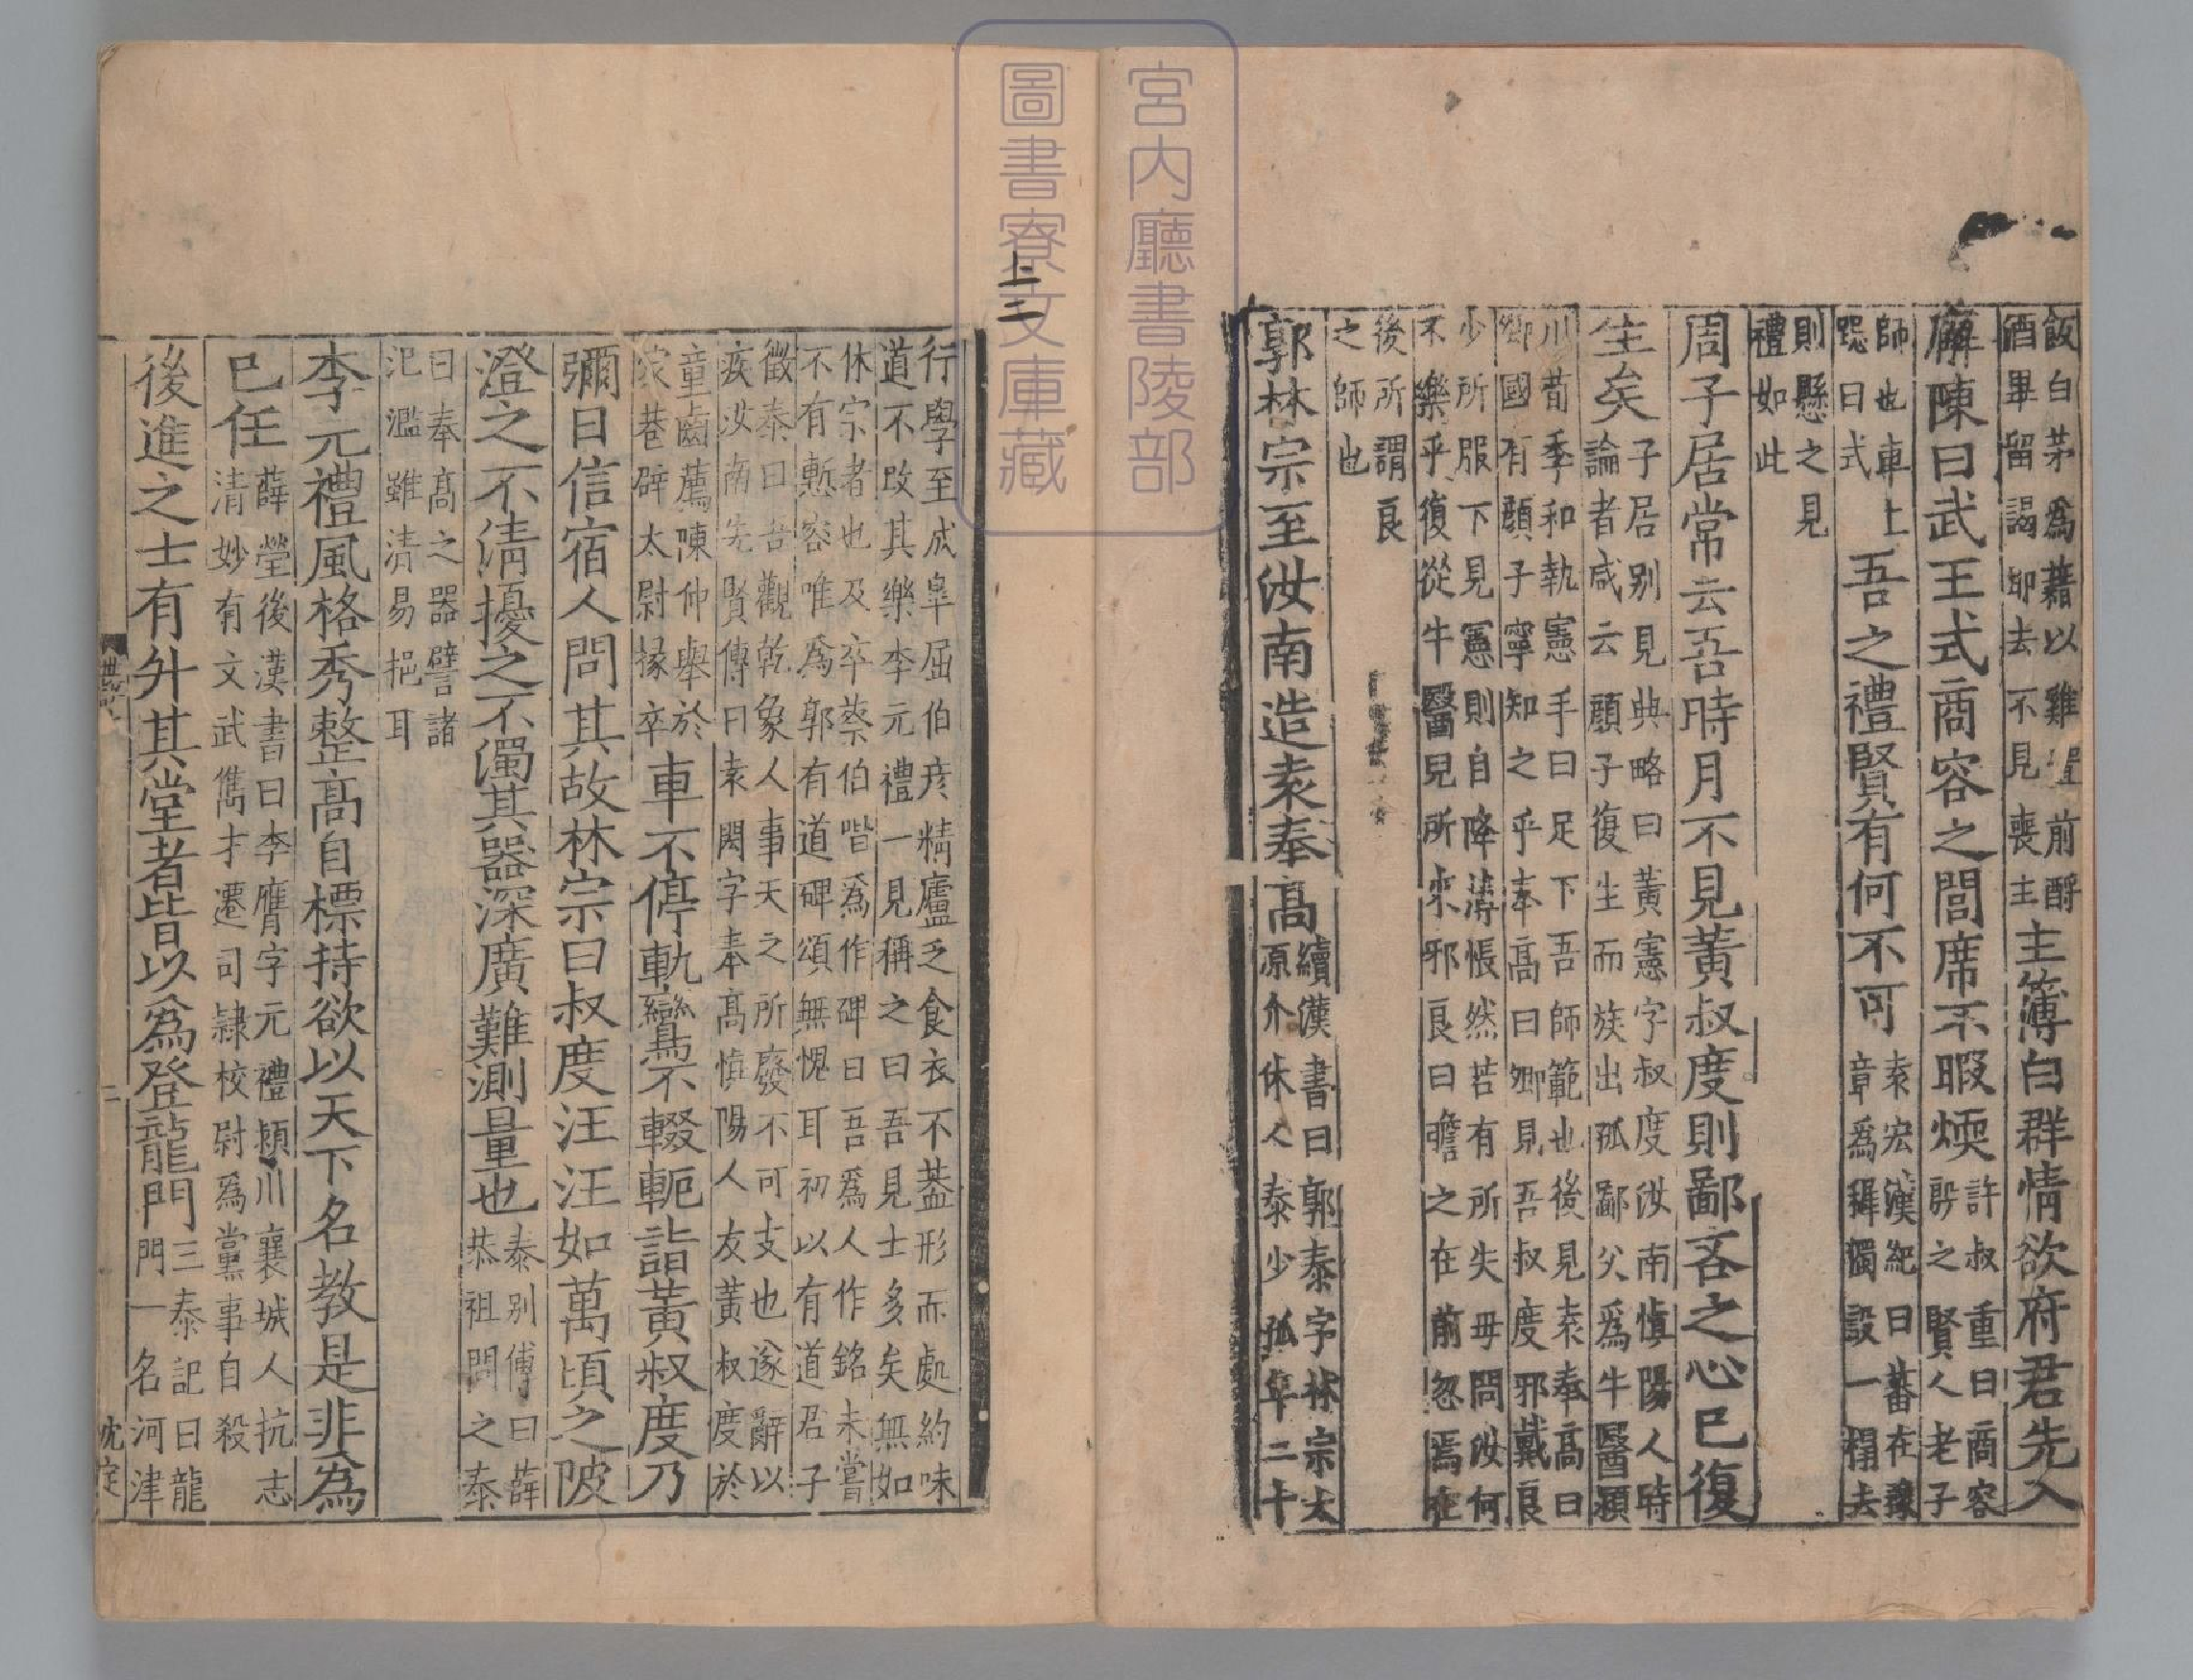 宮内廳書陵部
圖書寮文庫藏
飯白茅爲藉以雞置前酹
酒畢留謁即去不見喪主
主簿白群情欲府君先入
廨陳曰武王式商容之閭席不暇煗
許叔重曰商容
殷之賢人老子
師也車上
跽曰式
吾之禮賢有何不可
袁宏漢紀曰蕃在豫
章爲穉獨設一榻去
則懸之見
禮如此
周子居常云吾時月不見黃叔度則鄙吝之心已復
生矣
子居别見典略曰黃憲字叔度汝南慎陽人時
論者咸云顔子復生而族出孤鄙父爲牛醫潁
川荀季和執憲手曰足下吾師範也後見袁奉高曰
卿國有顔子寧知之乎奉高曰卿見吾叔度邪戴良
少所服下見憲則自降薄悵然若有所失母問汝何
不樂乎復從牛醫兒所來邪良曰瞻之在前忽焉在
後所謂良
之師也
郭林宗至汝南造袁奉高
續漢書曰郭泰字林宗太
原介休人泰少孤年二十
上二
行學至成臯屈伯彦精廬乏食衣不葢形而處約味
道不改其樂李元禮一見稱之曰吾見士多矣無如
林宗者也及卒蔡伯喈爲作碑曰吾爲人作銘未嘗
不有慙容唯爲郭有道碑頌無愧耳初以有道君子
徵泰曰吾觀乾象人事天之所廢不可支也遂辭以
疾汝南先賢傳曰袁閎字奉高慎陽人友黃叔度於
童齒薦陳仲舉於
家巷辟太尉掾卒
車不停軌鸞不輟軛詣黃叔度乃
彌日信宿人問其故林宗曰叔度汪汪如萬頃之陂
澄之不清擾之不濁其器深廣難測量也
泰别傳曰薛
恭祖問之泰
曰奉高之器譬諸
氾濫雖清易挹耳
李元禮風格秀整高自標持欲以天下名教是非爲
己任
薛瑩後漢書曰李膺字元禮潁川襄城人抗志
清妙有文武儁才遷司隷校尉爲黨事自殺
後進之士有升其堂者皆以爲登龍門
三秦記曰龍
門一名河津
二